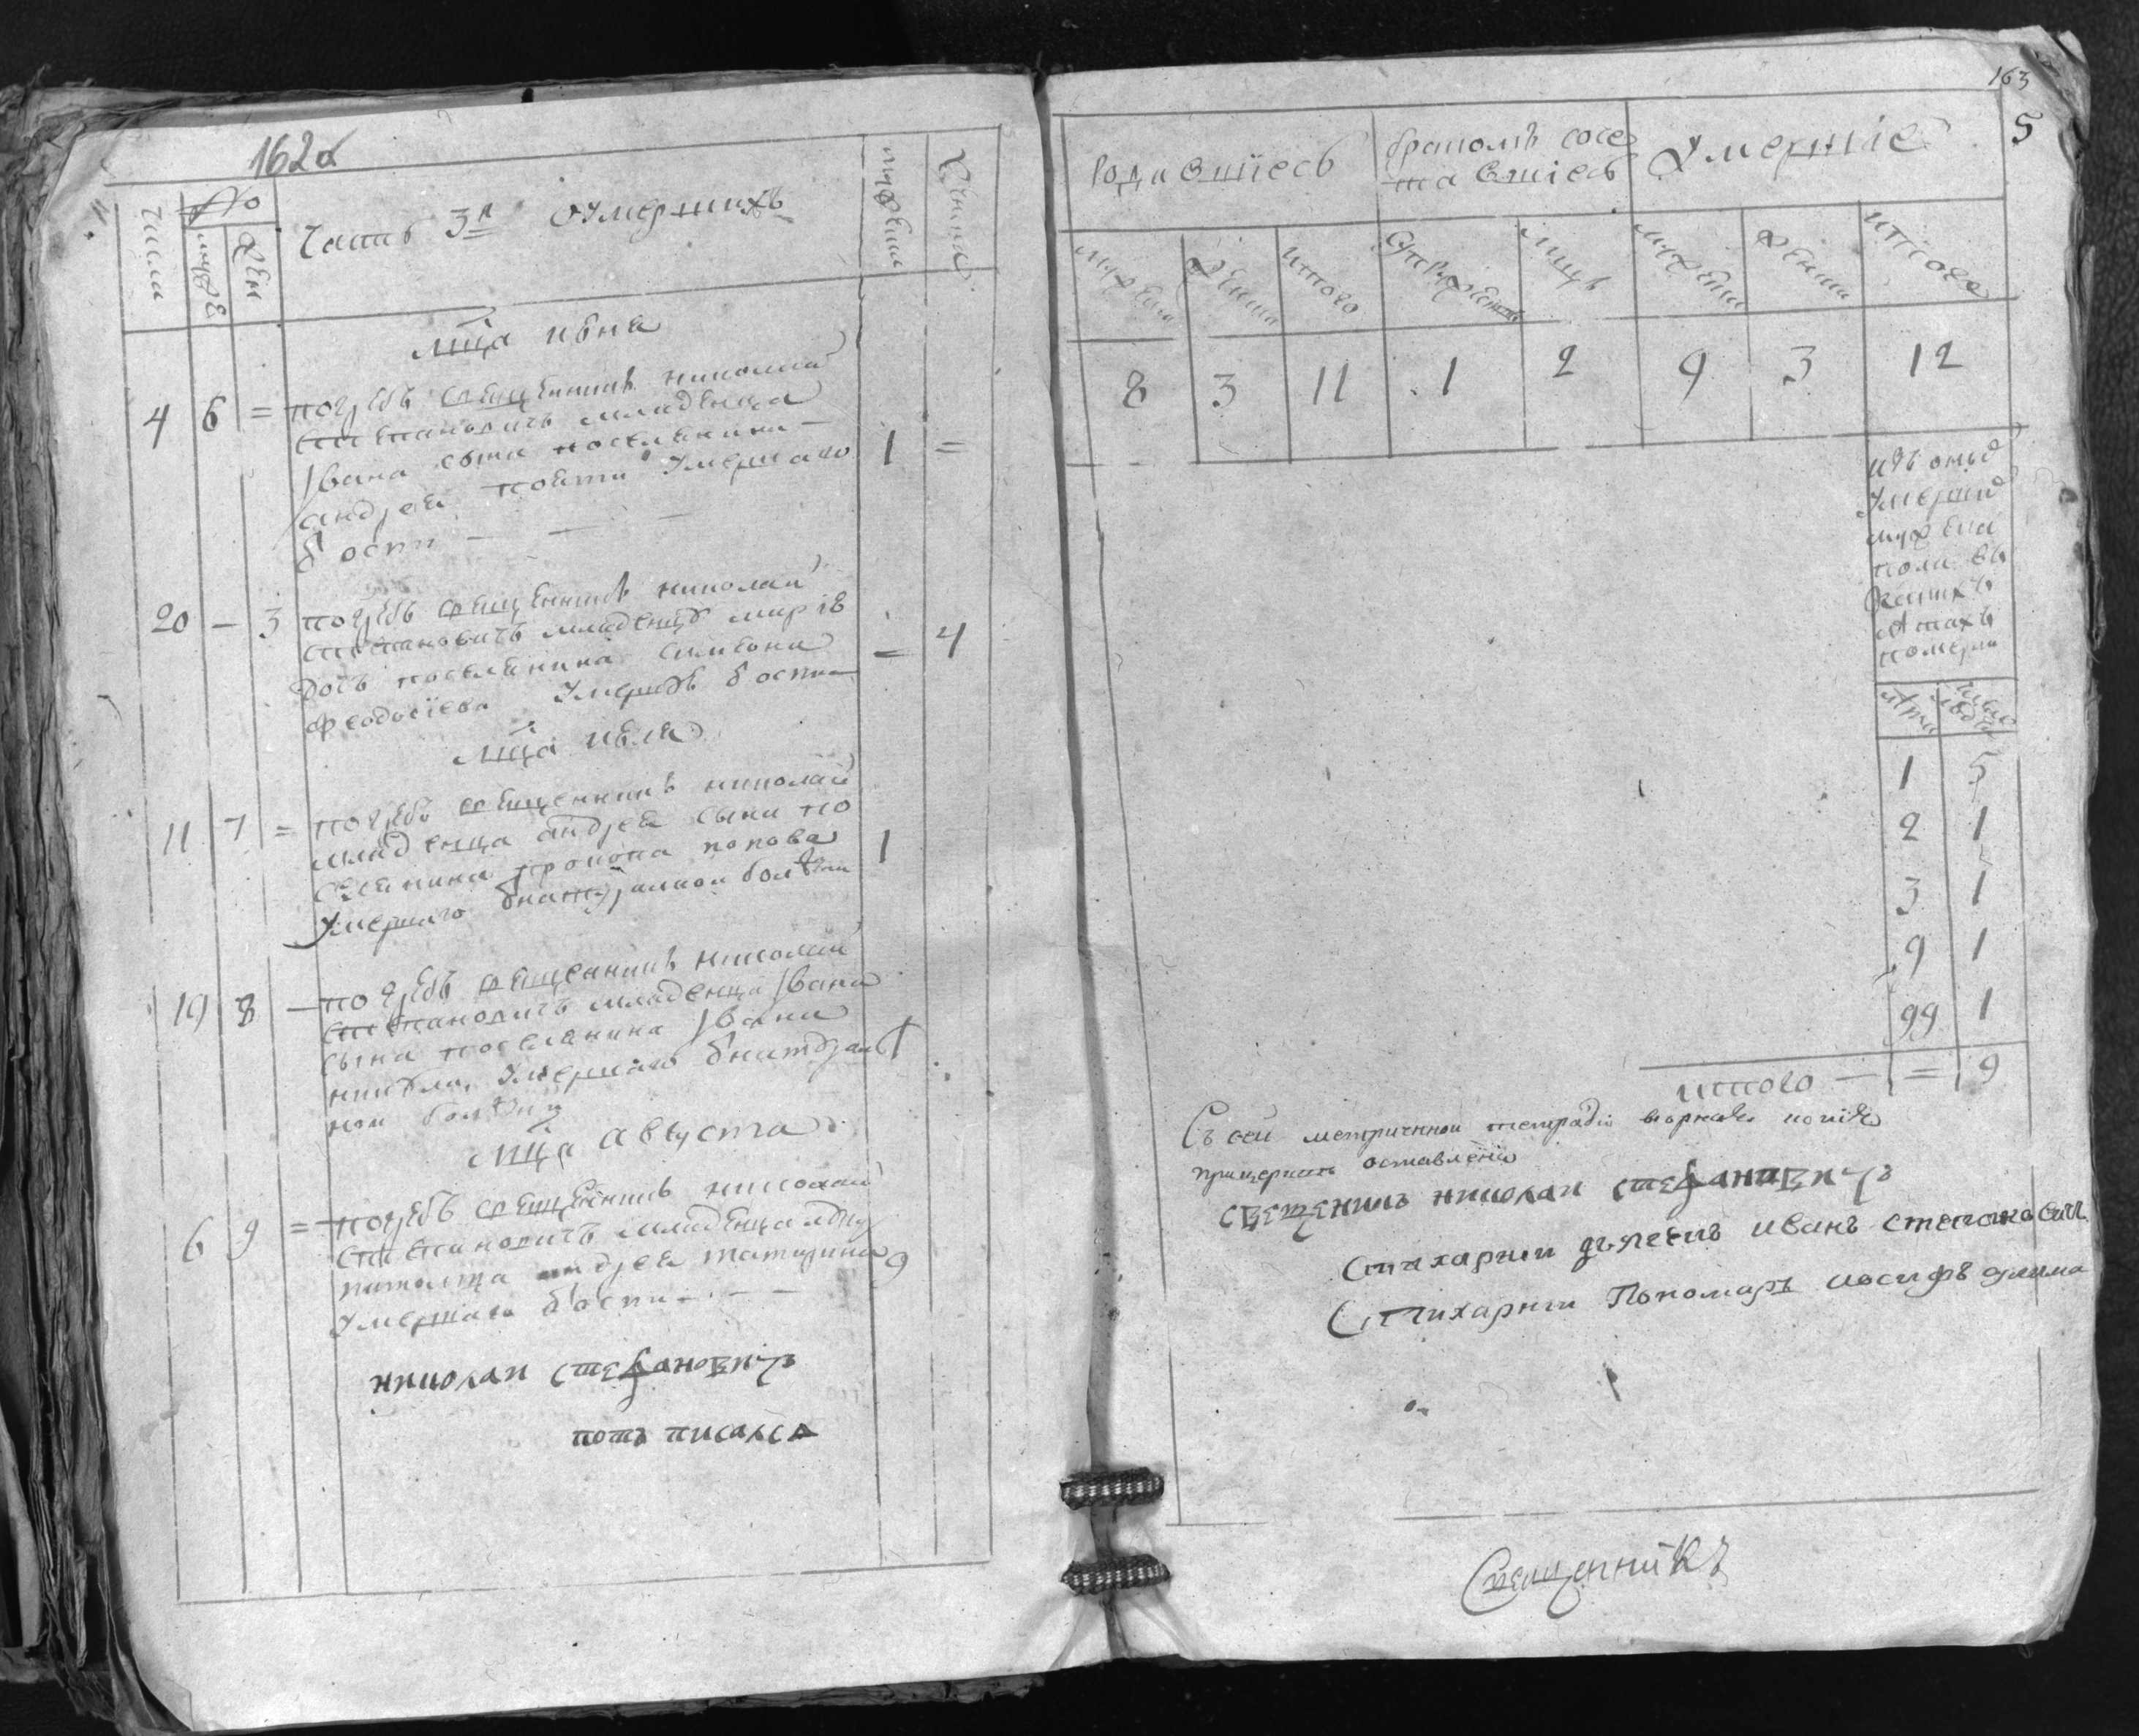 162
Числа
№
муже
жен
Часть 3я оумершихъ
мужеш
женска
Мца иѹня
4 6 = погребъ священникъ николай
стефановичъ младенца
Iвана сына поселянина
андрея умершаго 1 =
ѿ оспи
20 – 3 погребъ священникъ николай
стефановичъ младенца марiю
дочь поселянина симеона = 4
феодосiева умершую ѿ оспи
Мца июля
11 7 = погребъ священникъ николай
младенца андрея сына по
селянина прокопа попова 1
умершаго ѿ натуралной болѣзни
19 8 – погребъ священникъ николай
стефановичъ младенца Iвана
сына поселянина Iвана
умершаго ѿ натурал 1
ной болѣзни
Мца августа
6 9 = погребъ священникъ николай
стефановичъ младенца
андрея 9
умершаго ѿ оспи
николаи стефановичъ
потъ писался
163
5
Родившiесь
бракомъ соче
тавшiесь
Умершiе
мужеска
женска
итого
супружествъ
лицъ
мужеска
женска
итого
8 3 11 1 2 9 3 12
изъ оныхъ
умершихъ
мужеска
пола въ
какихъ
лѣтахъ
померли
лѣта
число
людей
1 5
2 1
3 1
9 1
99 1
итого = 9
Съ сей метрической тетради копiя
при церкви оставленна
священикъ николаи стефановичъ
Стихарнiи дьячекъ иванъ степановичъ
Стихарнiи Пономаръ иосифъ
Священникъ